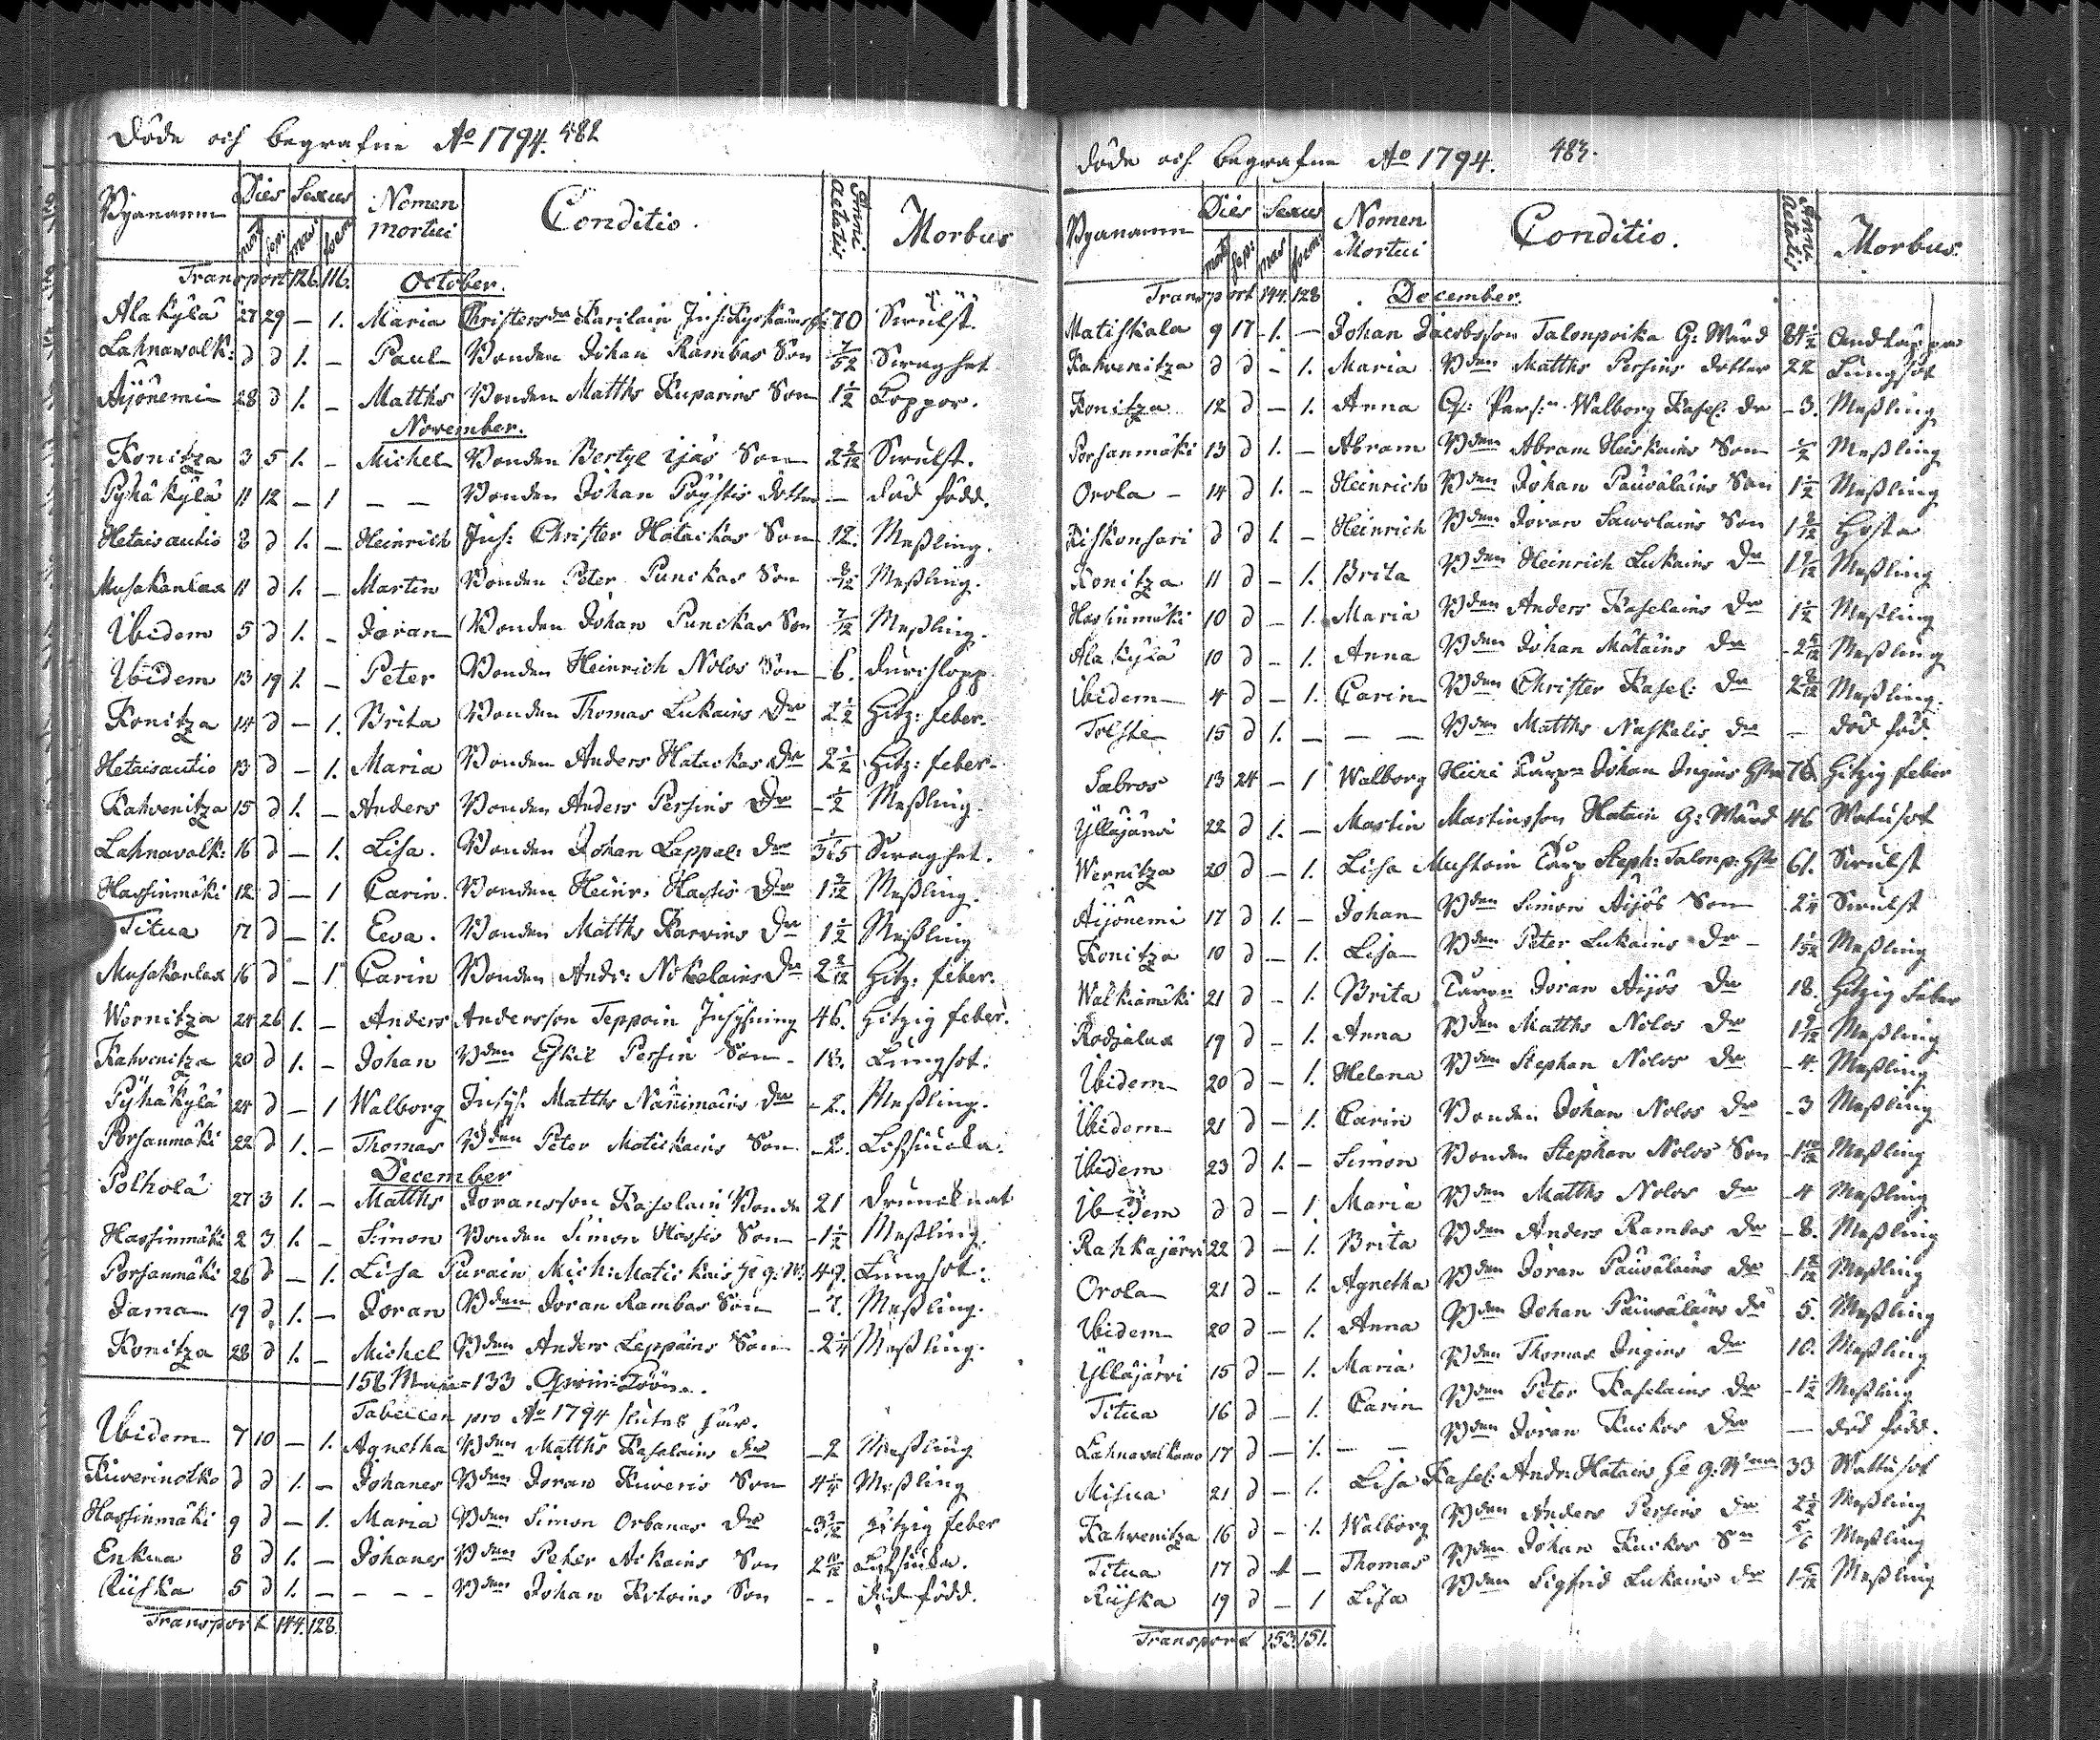 Döde och begrafne Ao 1794. 482
Byanamn Dies Sexus Nomen mortui Conditio. Anni Aetatis Morbus
mort: sep: mas foem
Transport 126. 116. October.
Alakylä 27 29 – 1. Maria Christersdr Karilain Inh: 70 Swulst.
Lahnawalk: d d 1. – Paul Bonden Johan Rambas Son Swaghet
Äijönemi 28 d 1. – Matths Bonden Matths Kuparins Son 1 1/2 Koppor.
November.
Konitza 3 5 1. – Michel Bonden Bertyl Ijäs Son 2 2/12 Swulst.
Pyhäkylä 11 12 – 1 – – Bonden Johan Pöystis dotter – död född.
Hetaisautio 8 d 1. – Heinrich Inh: Christer Hatackas Son 12. Meßling.
Musakanlax 11 d 1. – Martin Bonden Peter Punckas Son 8/12 Meßling.
Ibidem 5 d 1. – Joran Bonden Johan Punckas Son 7/12 Meßling.
Ibidem 13 19 1. – Peter Bonden Heinrich Nolos Son – 6. durchlopp
Konitza 14 d – 1. Brita Bonden Thomas Lukains Dr 2 1/2 Hitz: feber.
Hetaisautio 13 d – 1. Maria Bonden Anders Hatackas Dr 2 1/2 Hitz: feber.
Kahvenitza 15 d 1. – Anders Bonden Anders Persins Dr – 1/2 Meßling.
Lahnavalk: 16 d – 1. Lisa. Bonden Johan Lappal: dr Swaghet.
Hassinmäki 12 d – 1 Carin. Bonden Heinr: Hassis Dr Meßling.
Titua 17 d – 1. Eeva. Bonden Matths Karvins Dr 1 1/2 Meßling
Musakanlax 16 d – 1 Carin Bonden Andr: Nokelains Dr 2 2/12 Hitz: feber.
Wernitza 24 26 1. – Anders Andersson Teppoin Inhysning 46. Hitzig feber.
Kahvenitza 20 d 1. – Johan Bden Eskil Persin Son – 18. Lungsot.
Pyhäkylä 24 d – 1 Walborg Inhys. Matths Nännimäins Dr – 2. Meßling.
Porsanmäki 22 d 1. – Thomas Bden Peter Matickains Son – 2.
December
Polholä 27 3 1. – Matths Joransson Kaselain Bonde 21 druncknat
Hassinmäki 2 3 1. – Simon Bonden Simon Hassis Son – 1 1/2 Meßling.
Porsanmäki 26 d – 1. Lisa Purain Mich: Matickais 49. Lungsot.
Jama 19 d. 1. – Joran Bden Joran Rambas Son – 7. Meßling.
Konitza 28 d 1. – Michel Bden Anders Leppäins Son – 2 1/4 Meßling.
Tabellen pro Ao 1794 slutes här.
Ibidem 7 10 – 1. Agnetha Bden Matths Kaselains dr – 2 Meßling
Kiwerinotko d d 1. – Johanes Bden Joran Kiweris Son 4 1/4 Meßling
Hassinmäki 9 d – 1. Maria Bden Simon Orbanas Dr Hitzig feber
Enkua 8 d 1. – Johanes Bden Peter Ackains Son
Riiska 5 d 1. – – – – Bden Johan Son – – död född.
Transport 144. 128.
Döde och begrafne Ao 1794. 483.
Byanamn Dies Sexus Nomen Mortui Conditio. Anni Aetatis Morbus.
mort: sep: mas foem
Transport 144. 128. December.
Matiskala 9 17 1. – Johan Jacobsson Talonpoika G: Mård 84 1/2 Andtäppa
Kahvenitza d d – 1. Maria Bden Matths Persins dotter 22 Lungsot
Konitza 12 d – 1. Anna Walborg Kasel: dr – 3. Meßling
Porsanmäki 13 d 1. – Abram Bden Abram Heiskains Son 1/2 Meßling
Orola – 14 d 1. – Heinrich Bden Johan Päivälains Son 1 1/2 Meßling
Kiskonsari d d 1. – Heinrich Bden Joran Sawolains Son Hosta
Konitza 11 d – 1. Brita Bden Heinrich Lukains Dr Meßling
Hassinmäki 10 d – 1. Maria Bden Anders Kaselains Dr 1 1/2 Meßling
Alakylä 10 d – 1. Anna Bden Johan Matains Dr Meßling
Ibidem 4 d – 1. Carin Bden Christer Kasel: dr Meßling.
Tolste 15 d 1. – – – Bden Matths Naskalis dr – död föd.
Sabros 13 24 – 1 Walborg Johan Ingins 76. Hitzig feber
Ylläjärvi 22 d 1. – Martin Martinsson Hatain G: Mård 46 Watusot
Wernitza 20 d – 1. Lisa Mustoin Steph: Talonp: 61. Swulst
Äijönemi 17 d 1. – Johan Bden Simon Äijös Son 2 1/4 Swulst
Konitza 10 d – 1. Lisa Bden Peter Lukains dr – Meßling
Walkiamäki 21 d – 1. Brita Joran Äijös Dr 18. Hitzig feber
Rodzälax 19 d – 1. Anna Bden Matths Nolos Dr Meßling
Ibidem 20 d – 1. Helena Bden Stephan Nolos Dr – 4. Meßling
Ibidem 21 d – 1. Carin Bonden Johan Nolos dr – 3 Meßling
Ibidem 23 d 1. – Simon Bonden Stephan Nolos Son – 1 10/12 Meßling
Ibidem d d – 1 Maria Bden Matths Nolos dr – 4 Meßling
Rahkajärvi 22 d – 1. Brita Bden Anders Rambas dr – 8. Meßling
Orola 21 d – 1. Agnetha Bden Joran Päivälains dr Meßling
Ibidem 20 d – 1. Anna Bden Johan Päivälains dr 5. Meßling
Ylläjärvi 15 d – 1. Maria Bden Thomas Ingins dr 10. Meßling
Titua 16 d – 1. Carin Bden Peter Kaselains dr – 1 1/2 Meßling
Lahnavalkamo 17 d – 1. – – Bden Joran Kuckos dr – död född.
Misua 21 d – 1. Lisa Kasel: Andr: Hatains 33 Wattusot
Kahvenitza 16 d – 1. Walborg Bden Anders Persins dr 2 1/2 Meßling
Titua 17 d 1 – Thomas Bden Johan Kuckos Sn 5/6 Meßling
Riiska 19 d – 1 Lisa Bden Sigfrid Lukains dr Meßling
Transport 153. 151.